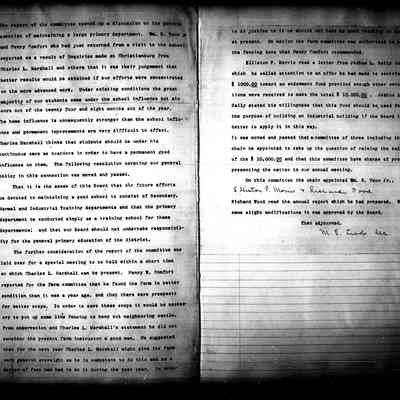 The report of the committee opened up a discussion on the general
question of maintaining a large primary department. Wm. B. Yeao jr
and Henry Comfort who had just returned from a visit to the School
reported as a result of inquiries made at Christiansburg from
Charles L. Marshall and others that it was their judgment that
better results would be obtained if our efforts were concentrated
on the more advanced work. Under existing conditions the great
majority of our students come under the school influence but six
hours out of the twenty four and eight months out of the year.
The home influence is consequently stronger than the school influ-
ence and permanent improvements are very difficult to effect.
Charles Marshall thinks that students should be under his
continuous care as boarders in order to have a permanent good
influence on them. The following resolution covering our general
policy in this connection was moved and passed.
That it is the sense of this Board that our future efforts
be devoted to maintaining a good school to consist of Secondary,
Normal and Industrial Training departments and that the primary
department be conducted simply as a training school for these
departments; and that our Board should not undertake responsibili-
ty for the general primary education of the district.
The further consideration of the report of the committee was
laid over for a special meeting to be held within a short time
at which Charles L. Marshall can be present. Henry W. Comfort
reported for the Farm committee that he found the farm in better
condition than it was a year ago, and that there are prospects
for better crops. In order to save these crops it would be necess-
ary to put up some line fencing to keep out neighboring cattle.
From observation and Charles L. Marshall's statement he did not
consider the present farm instructor a good man. He suggested
that for the next year Charles L. Marshall might give the farm
such general oversight as he is competent to do this and as a
matter of fact has had to do it during the past year. In
to do justice to it he should not have so much
at present. On motion the farm committee was authorized to
the fencing done that Henry Comfort recommended.
Elliston P. Morris read a letter from Joshua L. Baily in
which he called attention to an offer he had made to contribute
$ 1000.00 toward an endowment fund provided enough other contribu-
tions were received to make the total $ 10,000.00. Joshua L.
Baily stated his willingness that this fund should be used for
the purpose of building an industrial building if the Board thought
better to apply it in this way.
It was moved and passed that a committee of three including the
chair be appointed to take up the question of raising the balance
of the $ 10,000.00 and that this committee have charge of properly
presenting the matter to our annual meeting.
On this committee the chair appointed Wm. B. Yeao Jr.,
Elliston P. Morris & Richard Wood
Richard Wood read the annual report which he had prepared. With
some slight modifications it was approved by the Board.
Then adjourned.
M. E. Sec